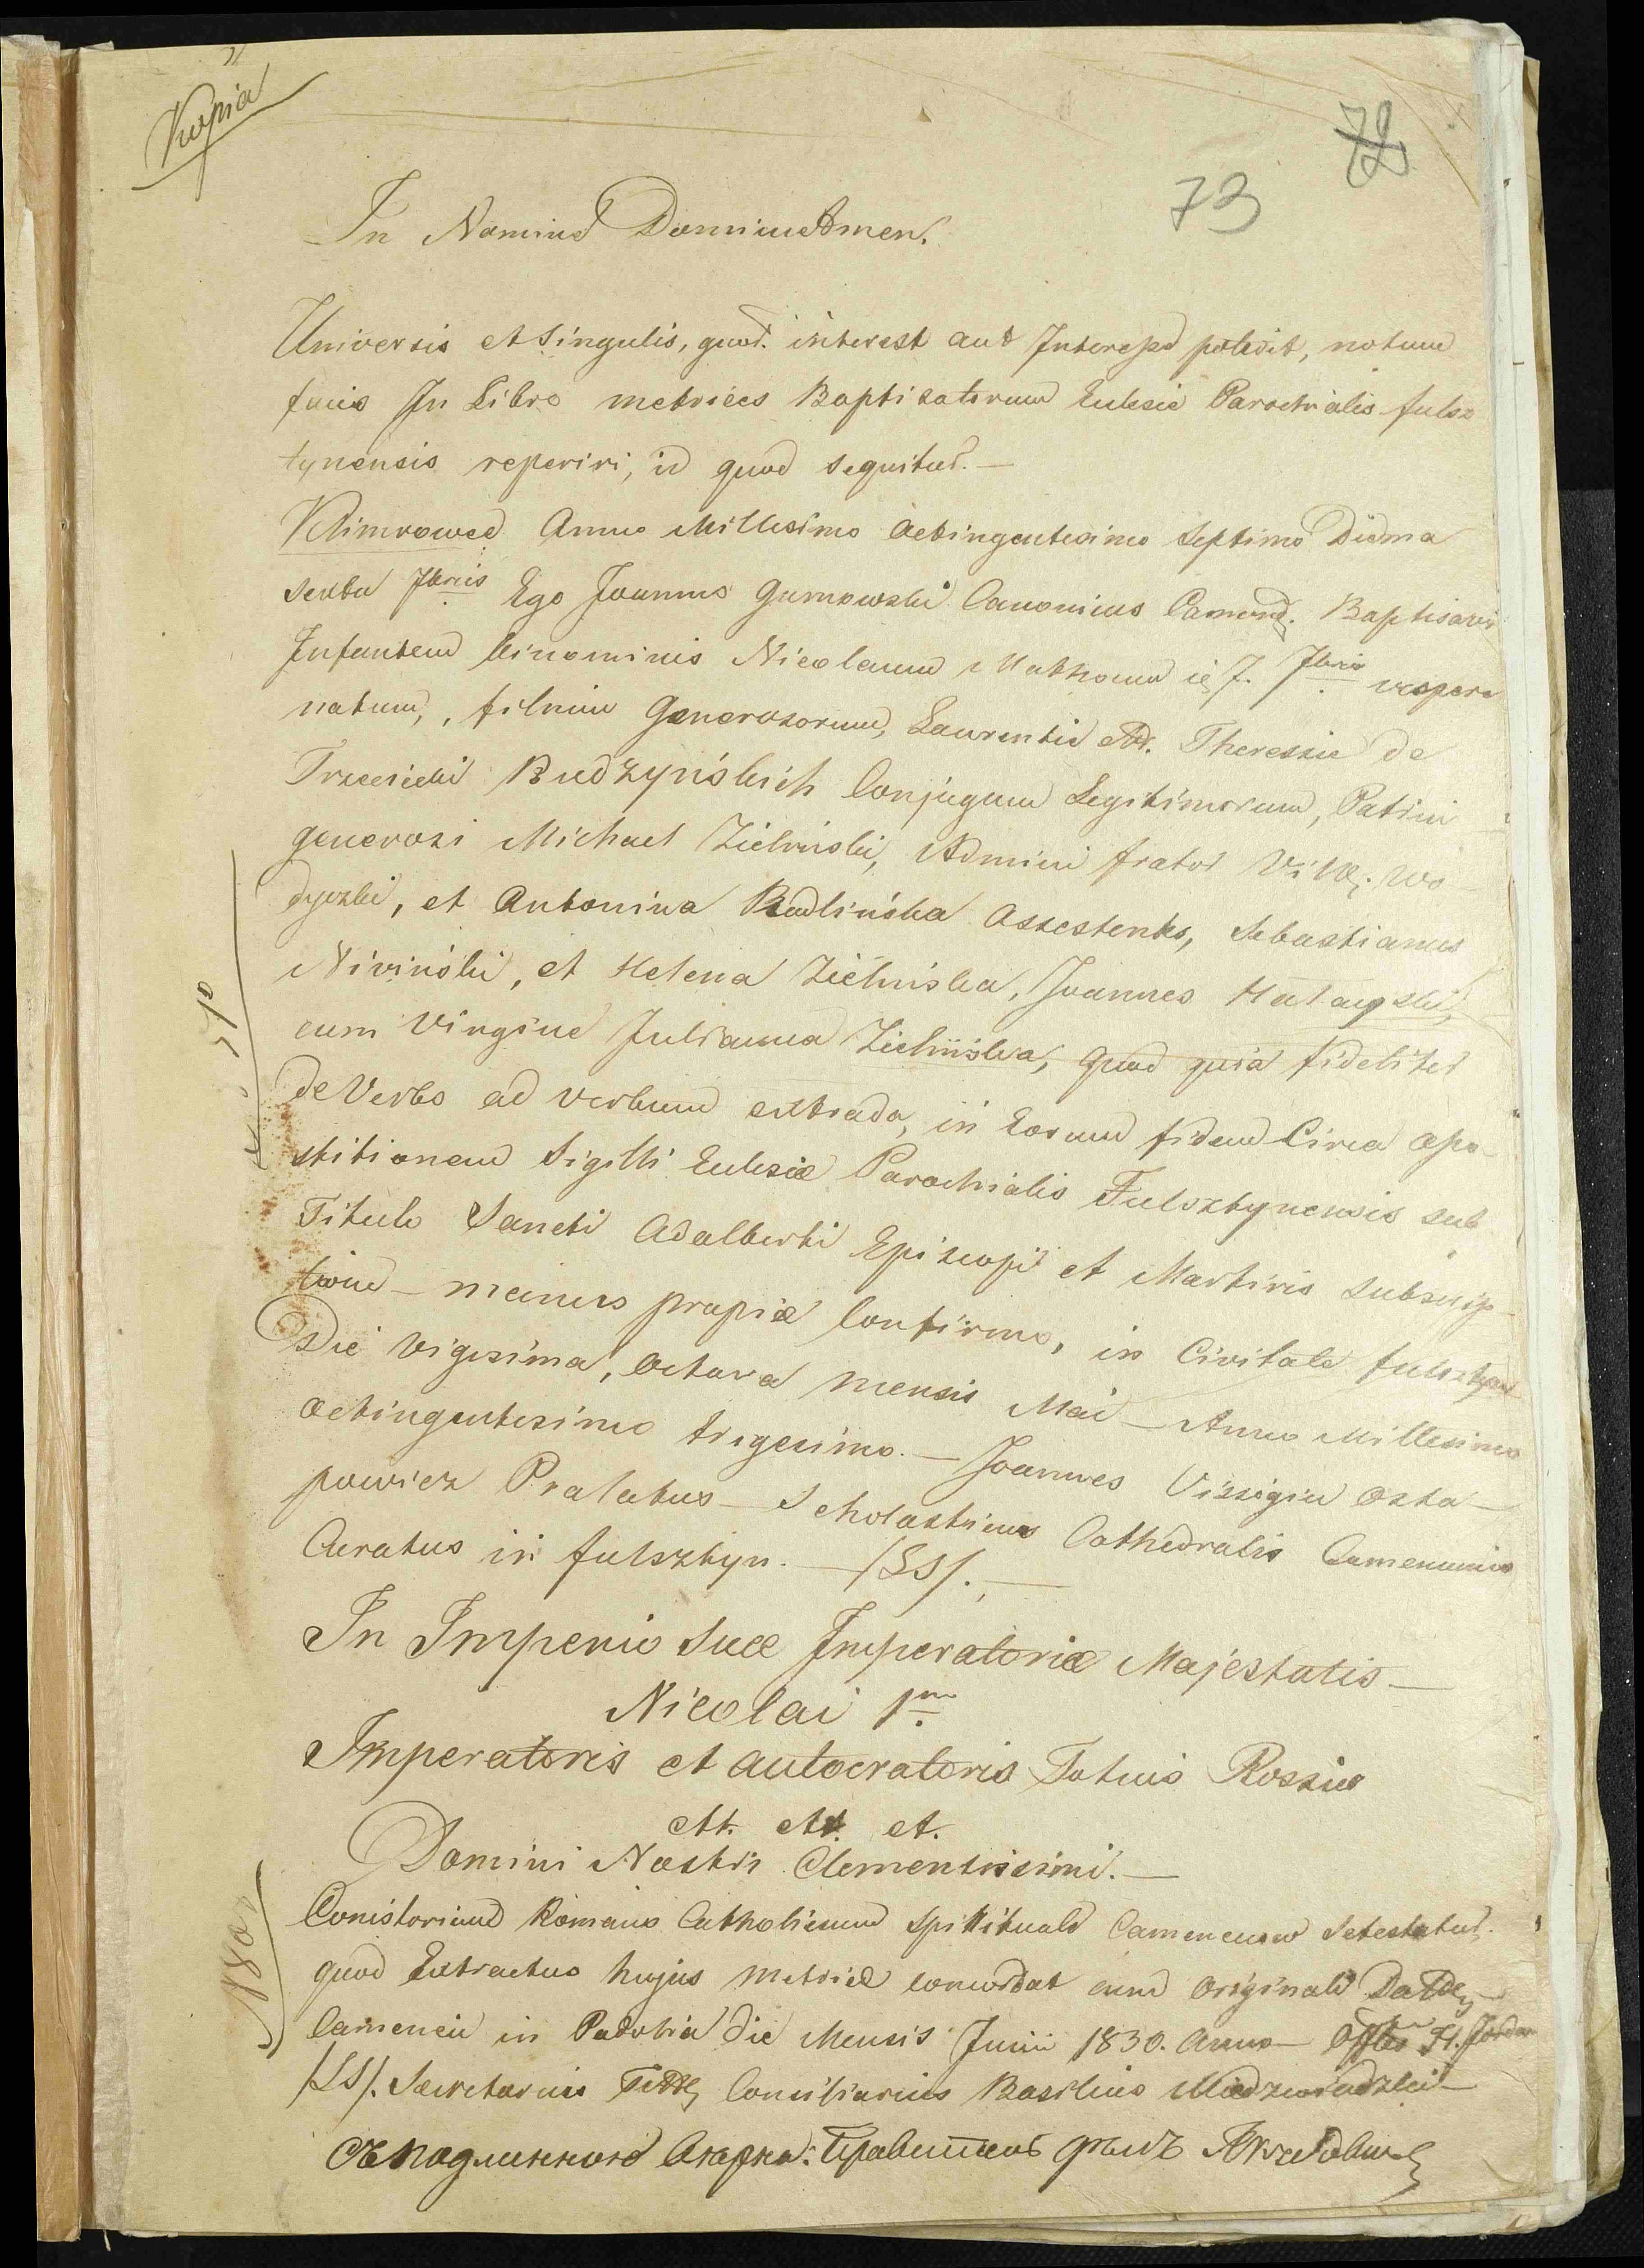 Kopia
72
73
In Nomine Domini Amen.
Universis et Singulis, quor. interest aut Interesse poterit, notum
facio In Libro metrices Baptisatorum Eclesie Parochialis fulsz
tynensis reperiri, id quod sequitur.—
Klimrowce Anno Millesimo Octingentesimo Septimo Die
Sexta 7bris Ego Joannes Gurnowski Canonicus Camened. Baptisavi
Infantem binominis Nicolaum 7bris vespere
natum, filium Generosorum, Laurentii et Theresiæ de
Trzecieski Budzyńskich Conjugum Legitimorum, Patrini
generosi Michael Zieliński, Administrator Vill. Wo
dyczki, et Antonina Radlińska Assestentes, Sebastianus
Niviński, et Helena Zielińska, Joannes
cum Virgine Julianna Zielińska, quod quia fideliter
de Verbo ad verbum extrado, in Eorum fidem Circa apo-
stitionem Sigilli Eclesiæ Parochialis Fulsztynensis sub
Titulo Sancti Adalberti Episcopi et Martiris subscrip-
tione — manus propiæ Confirmo, in Civitate fulsztyn
Die Vigesima, Octava mensis Mai — Anno Millesimo
Octingentesimo trigesimo.— Joannes Osta—
powicz Pralatus — Scholasticus Cathedralis Camenecensis
Curatus in fulsztyn.— /LS/.—
In Imperio Suæ Imperatoriæ Majestatis—
Nicolai 1mi
Imperatoris et autocratoris Totius Rossiæ
et. et. et.
Domini Nostri Clementissimi.—
Conistorium Romano Catholicum Spirituale Camenecense
quod Extractus hujus Metricæ concordat cum Originale Datt
Camenecii in Podolia die Mensis Junii 1830. Anno—
/LS/. Secretarius Titt Consiliarius Basilius Niedzwiedzki—
Съ подлиннымъ